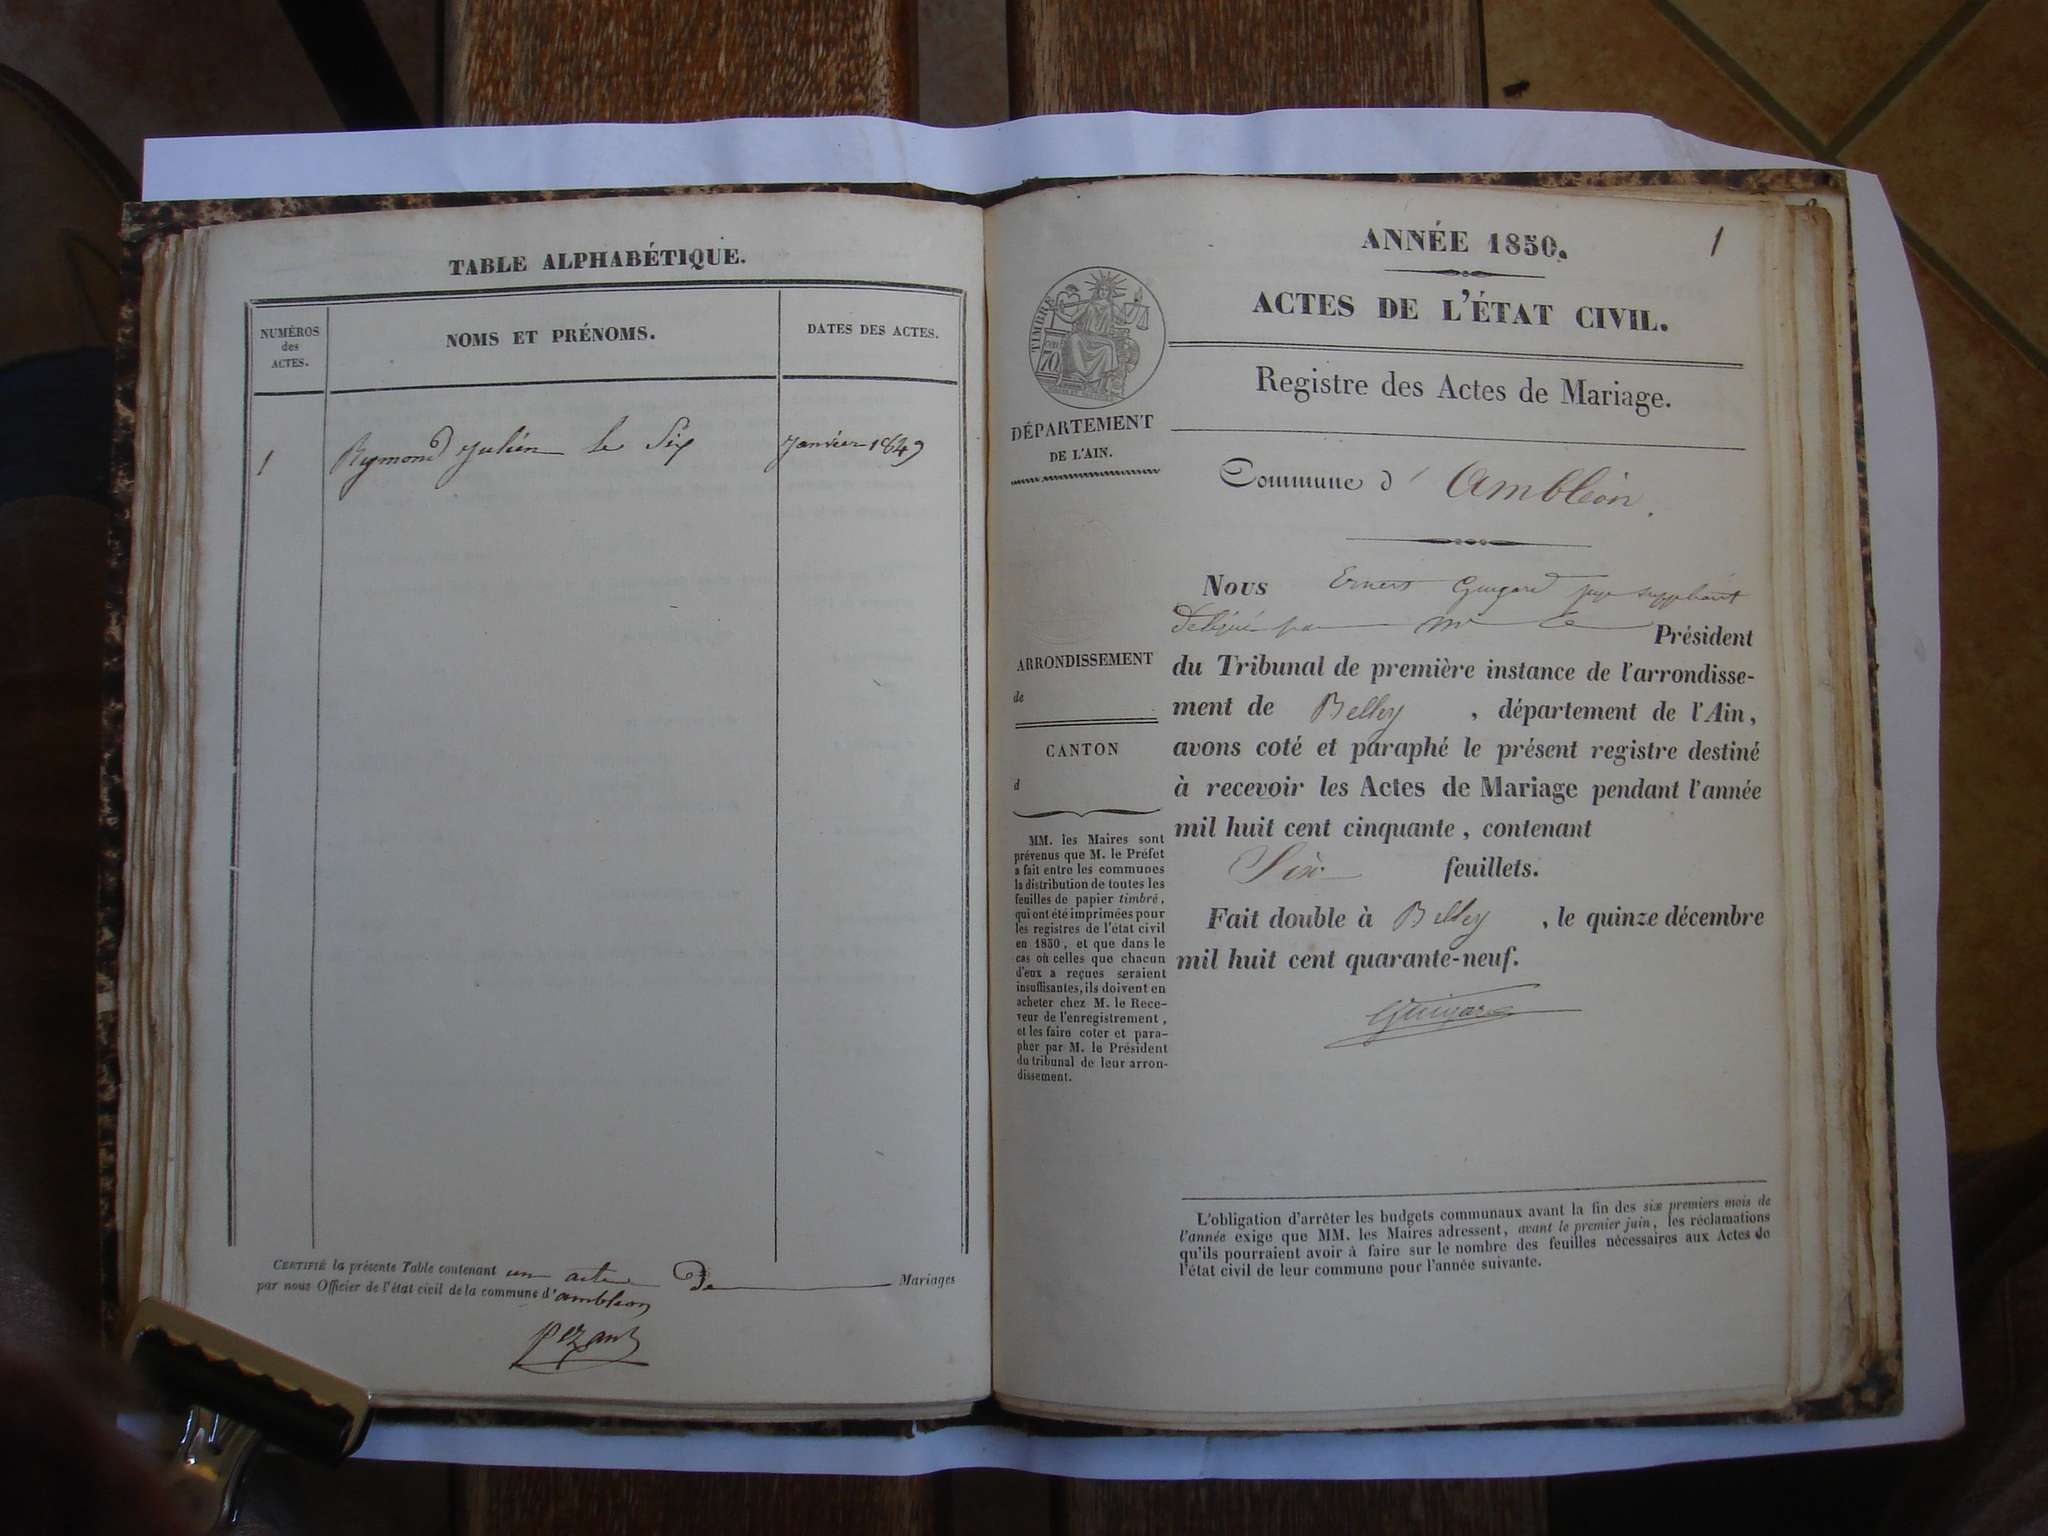 TABLE ALPHABÉTIQUE.
NUMÉROS
des
ACTES.
NOMS ET PRÉNOMS.
DATES DES ACTES.
1 Rymond Julien le Six Janvier 1849
CERTIFIÉ la présente Table contenant un acte De Mariages
par nous Officier de l'état civil de la commune d'ambléon
pezant
1
ANNÉE 1850.
ACTES DE L'ÉTAT CIVIL.
TIMBRE
70
DÉPARTEMENT
DE L'AIN.
Registre des Actes de Mariage.
Commune d' Ambléon.
Nous Ernest Guigard juge suppléant
Délégué par Mr le Président
du Tribunal de première instance de l'arrondisse-
ment de Belley, département de l'Ain,
avons coté et paraphé le présent registre destiné
à recevoir les Actes de Mariage pendant l'année
mil huit cent cinquante, contenant
Six feuillets.
Fait double à Belley, le quinze décembre
mil huit cent quarante-neuf.
Guigard
ARRONDISSEMENT
de
CANTON
d
MM. les Maires sont
prévenus que M. le Préfet
a fait entre les communes
la distribution de toutes les
feuilles de papier timbré,
qui ont été imprimées pour
les registres de l'état civil
en 1850, et que dans le
cas où celles que chacun
d'eux a reçues seraient
insuffisantes, ils doivent en
acheter chez M. le Rece-
veur de l'enregistrement,
et les faire coter et para-
pher par M. le Président
du tribunal de leur arron-
dissement.
L'obligation d'arrêter les budgets communaux avant la fin des six premiers mois de
l'année exige que MM. les Maires adressent, avant le premier juin, les réclamations
qu'ils pourraient avoir à faire sur le nombre des feuilles nécessaires aux Actes de
l'état civil de leur commune pour l'année suivante.